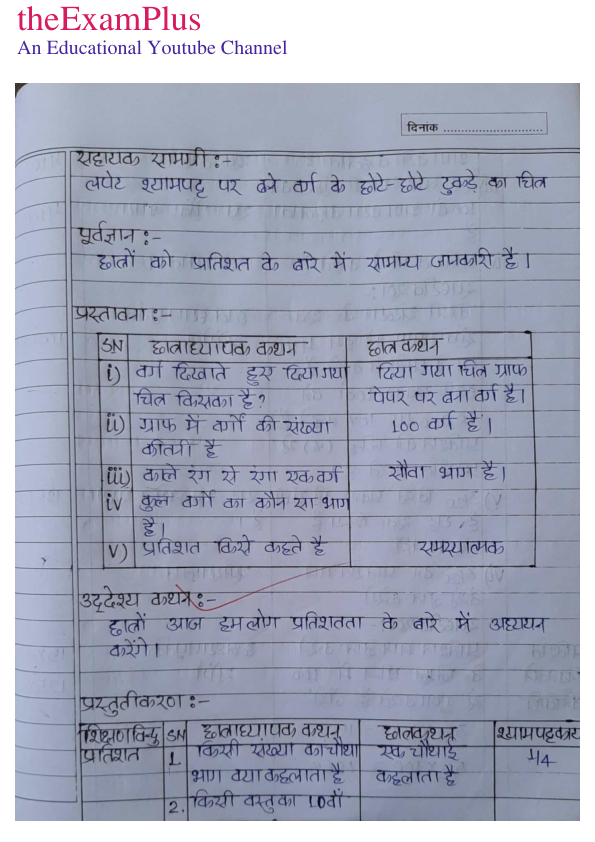 theExamPlus
An Educational Youtube Channel
दिनांक ............................
सहायक सामग्री :-
लपेट श्यामपट्ट पर बने वर्ग के छोटे-छोटे टुकड़े का चित्र
पूर्वज्ञान :-
छात्रों को प्रतिशत के बारे में सामान्य जानकारी है।
प्रस्तावना :-
SN छात्राध्यापक कथन छात्र कथन
i) वर्ग दिखाते हुए दिया गया दिया गया चित्र ग्राफ
चित्र किसका है? पेपर पर बना वर्ग है।
ii) ग्राफ में वर्गों की संख्या 100 वर्ग हैं।
कीतनी है
iii) काले रंग से रंगा एक वर्ग सौवा भाग है।
iv कुल वर्गो का कौन सा भाग
है।
v) प्रतिशत किसे कहते है समस्यात्मक
उद्देश्य कथन :-
छात्रों आज हमलोग प्रतिशतता के बारे में अध्ययन
करेंगे।
प्रस्तुतीकरण :-
शिक्षणविन्दु SN छात्राध्यापक कथन छात्रकथन श्यामपट्टकार्य
प्रतिशत 1. किसी संख्या का चौथा एक चौथाई 1/4
भाग क्या कहलाता है कहलाता है
2. किसी वस्तु का 10वाँ